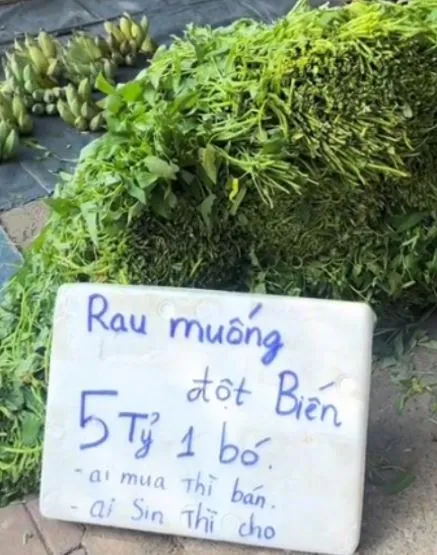 Rau muống
đột Biến
5 Tỷ 1 bó.
- ai mua Thì bán.
- ai Sin Thì cho